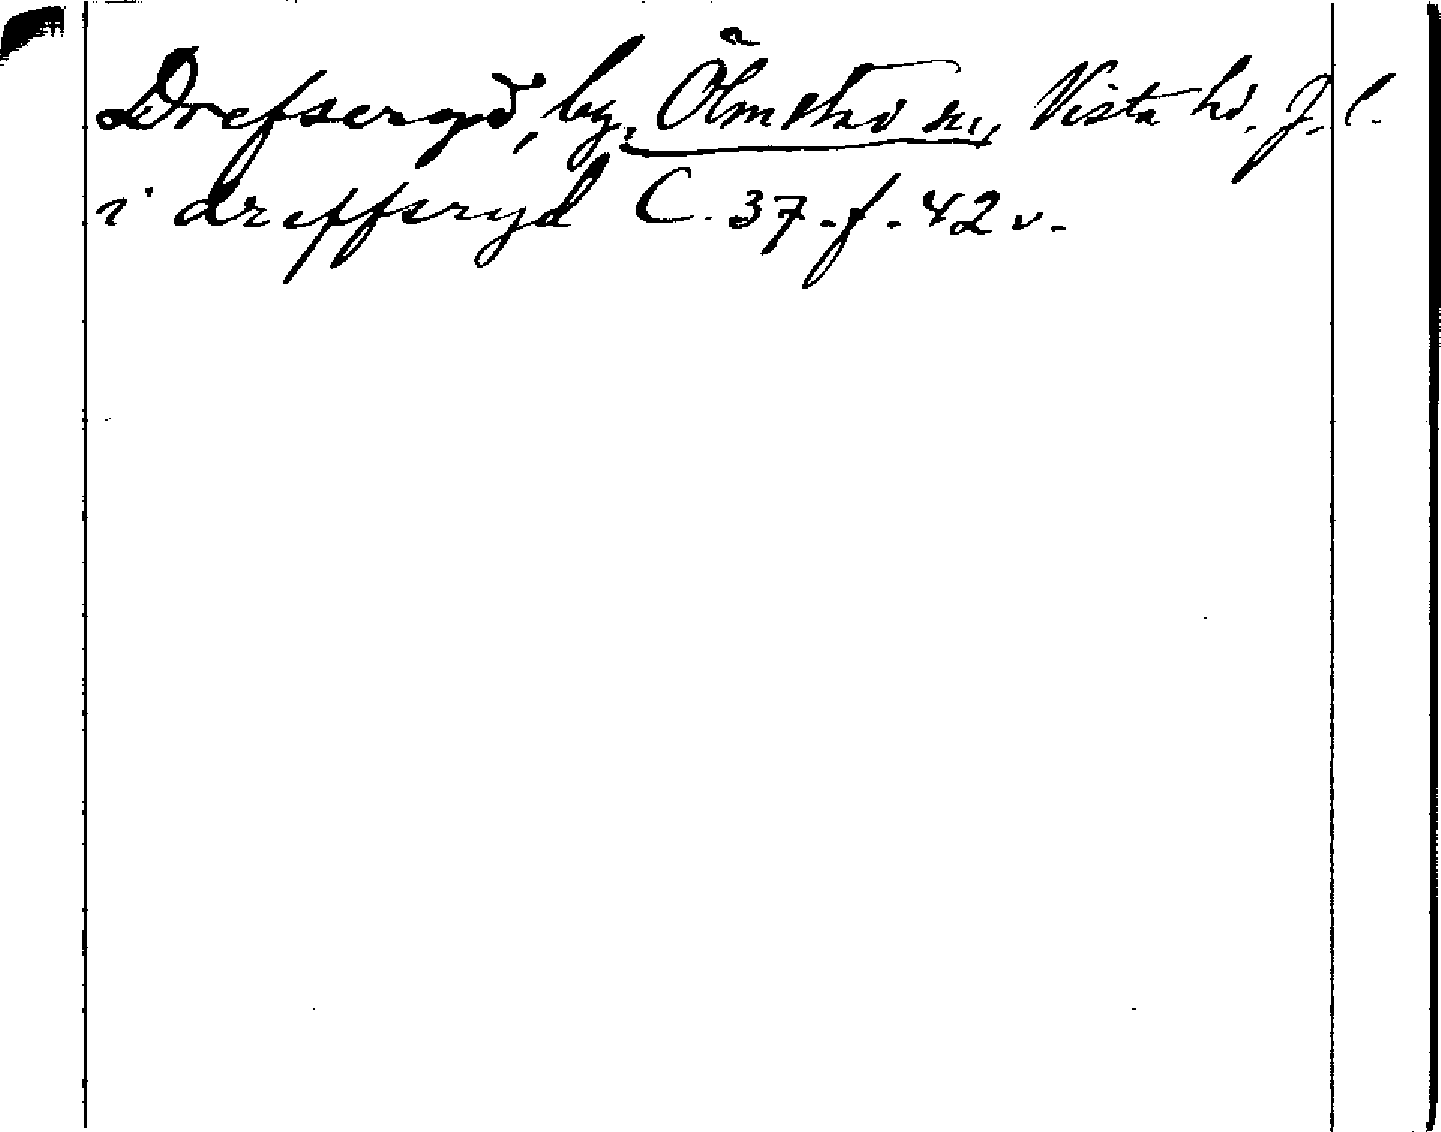 Drefseryd, by, Ölmstad sn, Vista hd. J. l.
i dreffseryd C. 37. f. 42 v.